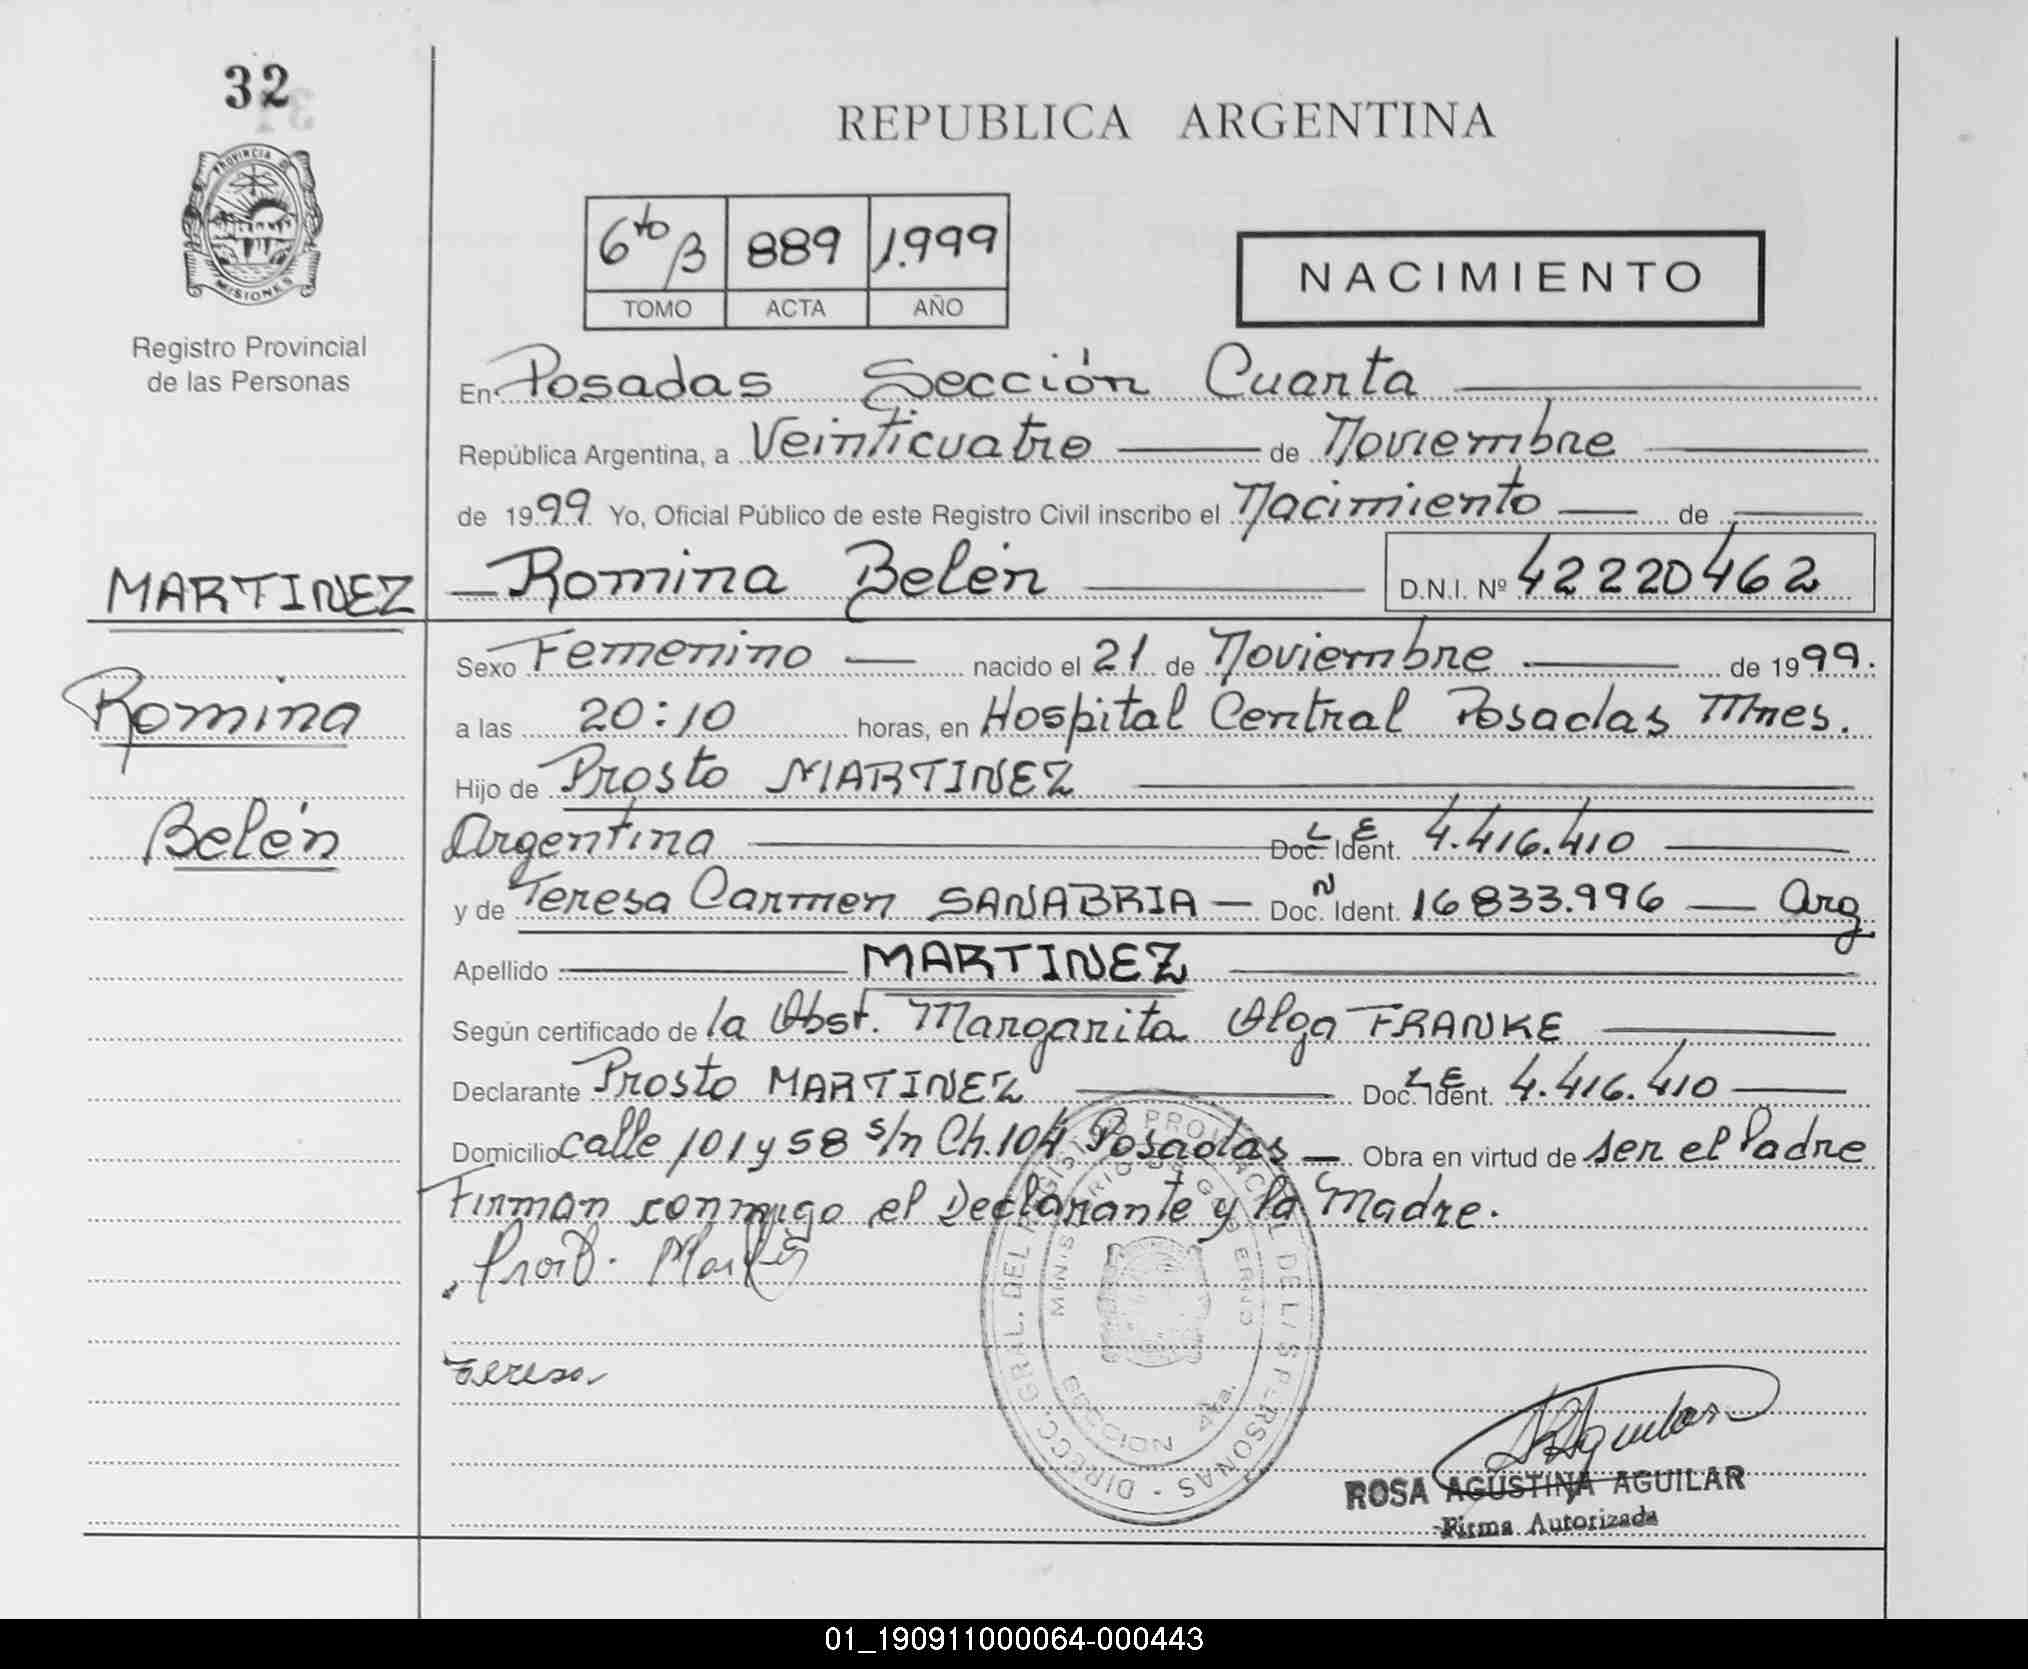 32
PROVINCIA DE
MISIONES
Registro Provincial
de las Personas
MARTINEZ
Romina
Belén
REPUBLICA ARGENTINA
6to B 889 1.999
TOMO ACTA AÑO
NACIMIENTO
En Posadas Sección Cuarta
República Argentina, a Veinticuatro de Noviembre
de 1999 Yo, Oficial Público de este Registro Civil inscribo el Nacimiento de
Romina Belén D.N.I. Nº 42220462
Sexo Femenino nacido el 21 de Noviembre de 1999.
a las 20:10 horas, en Hospital Central Posadas Mnes.
Hijo de Prosto MARTINEZ
Argentina Doc. Ident. L E 4.416.410
y de Teresa Carmen SANABRIA Doc. Ident. N 16833.996 Arg
Apellido MARTINEZ
Según certificado de la Obst. Margarita Olga FRANKE
Declarante Prosto MARTINEZ Doc. Ident. L E 4.416.410
Domicilio calle 101 y 58 s/n Ch. 104 Posadas Obra en virtud de ser el Padre
Firman conmigo el Declarante y la Madre.
Teresa
DIRECC. GRAL. DEL REGISTRO PROVINCIAL DE LAS PERSONAS
MINISTERIO DE GOBIERNO
SECCION 4ta.
ROSA AGUSTINA AGUILAR
Firma Autorizada
01_190911000064-000443